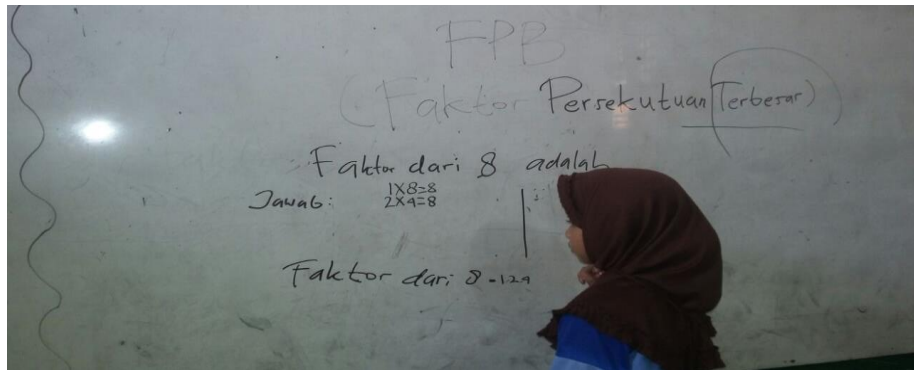 FPB
(Faktor Persekutuan Terbesar)
Faktor dari 8 adalah
Jawab: 1X8=8
2X4=8
Faktor dari 8 = 1.2.4